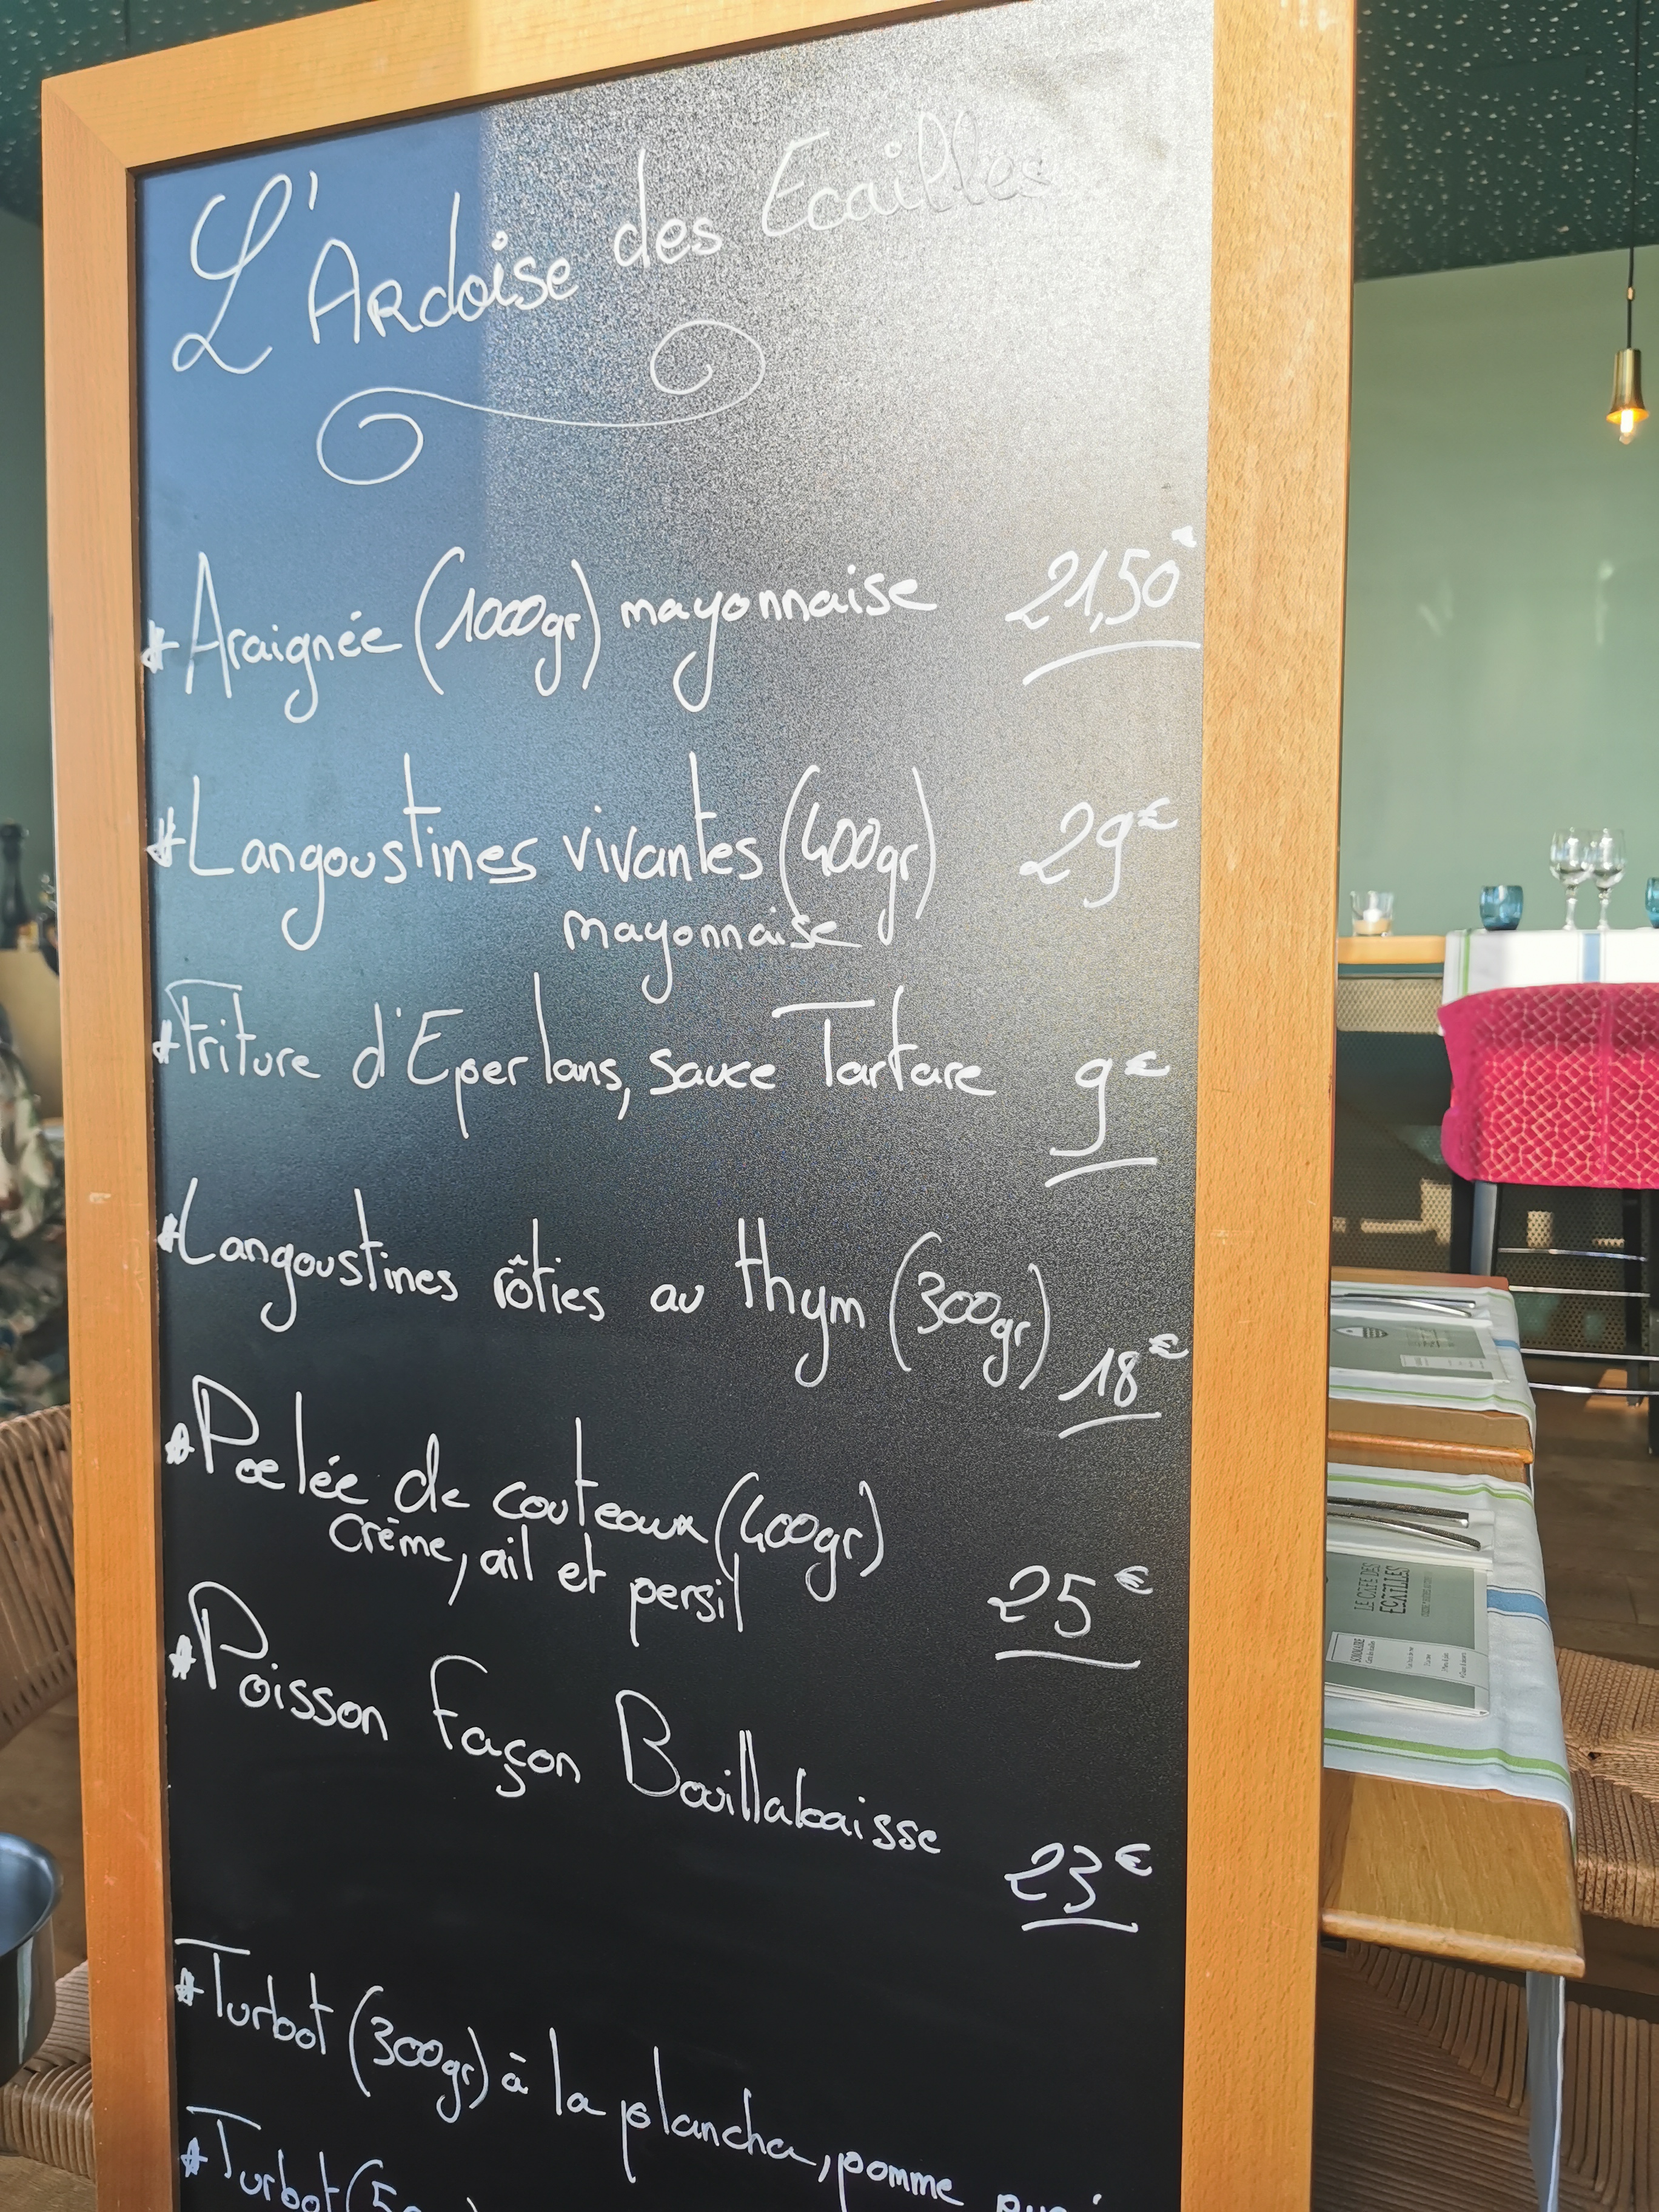 L'Ardoise des Ecailles
#Araignée (1000gr) mayonnaise 21,50€
#Langoustines vivantes (400gr) 29€
mayonnaise
#Friture d'Eperlans, sauce Tartare 9€
#Langoustines rôties au thym (300gr)
18€
#Poelée de couteaux (400gr)
crème, ail et persil 25€
#Poisson façon Bouillabaisse
23€
#Turbot (300gr) à la plancha, pomme
#Turbot
LE CAFÉ DES
ECAILLES
SOMMAIRE